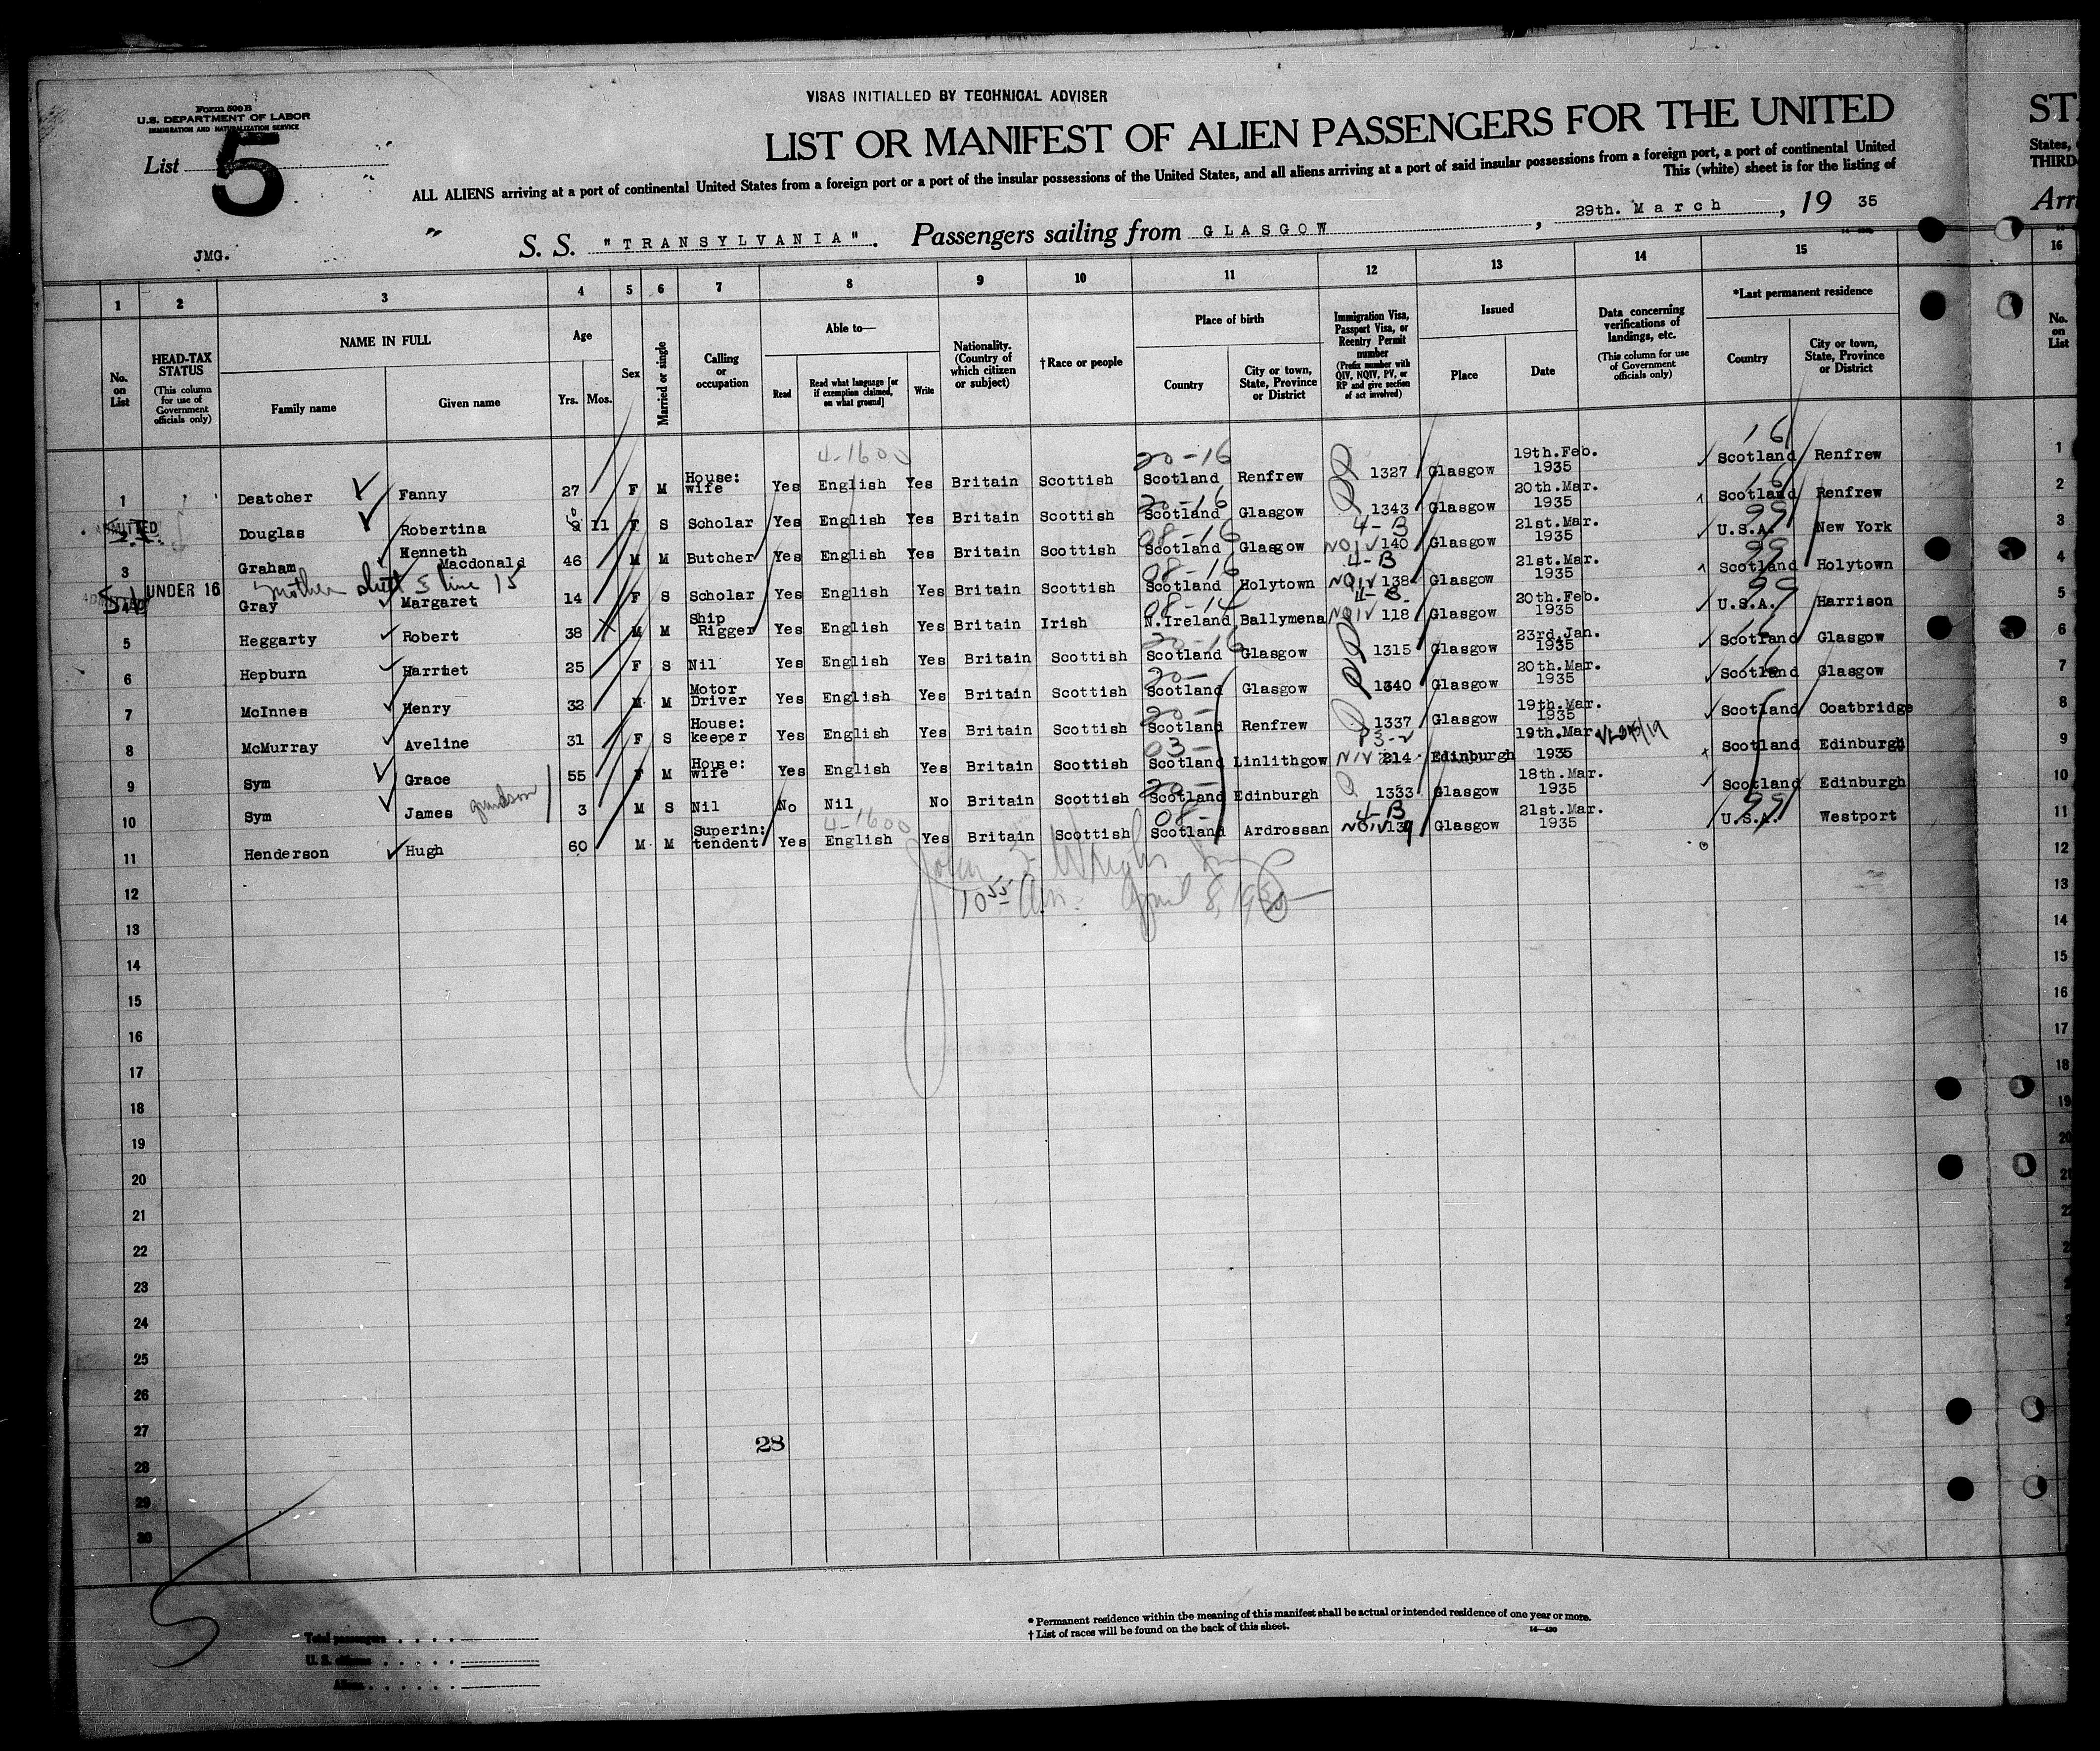 VISAS INITIALLED BY TECHNICAL ADVISER
Form 500 B
U.S. DEPARTMENT OF LABOR
IMMIGRATION AND NATURALIZATION SERVICE
List 5
LIST OR MANIFEST OF ALIEN PASSENGERS FOR THE UNITED
ALL ALIENS arriving at a port of continental United States from a foreign port or a port of the insular possessions of the United States, and all aliens arriving at a port of said insular possessions from a foreign port, a port of continental United
This (white) sheet is for the listing of
JMG.
S. S. "TRANSYLVANIA". Passengers sailing from GLASGOW, 29th. March, 19 35
STA
States,
THIRD
Arri
1 2 3 4 5 6 7 8 9 10 11 12 13 14 15 16
No. on List
HEAD-TAX STATUS (This column for use of Government officials only)
NAME IN FULL
Family name Given name
Age
Yrs. Mos.
Sex
Married or single
Calling or occupation
Able to—
Read Read what language [or if exemption claimed, on what ground] Write
Nationality. (Country of which citizen or subject)
†Race or people
Place of birth
Country City or town, State, Province or District
Immigration Visa, Passport Visa, or Reentry Permit number (Prefix number with QIV, NQIV, PV, or RP and give section of act involved)
Issued
Place Date
Data concerning verifications of landings, etc. (This column for use of Government officials only)
*Last permanent residence
Country City or town, State, Province or District
No. on List
4-1600 20-16 16
1 Deatcher Fanny 27 F M House: wife Yes English Yes Britain Scottish Scotland Renfrew Q 1327 Glasgow 19th.Feb. 1935 Scotland Renfrew 1
20-16 16
ADMITTED
2 Douglas Robertina 11 F S Scholar Yes English Yes Britain Scottish Scotland Glasgow Q 1343 Glasgow 20th.Mar. 1935 Scotland Renfrew 2
08-16 4-B 99
3 Graham Kenneth Macdonald 46 M M Butcher Yes English Yes Britain Scottish Scotland Glasgow NQIV 140 Glasgow 21st.Mar. 1935 U.S.A. New York 3
mother sheet 5 line 15
08-16 4-B 99
UNDER 16 Gray Margaret 14 F S Scholar Yes English Yes Britain Scottish Scotland Holytown NQIV 138 Glasgow 21st.Mar. 1935 Scotland Holytown 4
08-14 4-B 99
5 Heggarty Robert 38 M M Ship Rigger Yes English Yes Britain Irish N.Ireland Ballymena NQIV 118 Glasgow 20th.Feb. 1935 U.S.A. Harrison 5
20-16 16
6 Hepburn Harriet 25 F S Nil Yes English Yes Britain Scottish Scotland Glasgow Q 1315 Glasgow 23rd.Jan. 1935 Scotland Glasgow 6
20- 16
7 McInnes Henry 32 M M Motor Driver Yes English Yes Britain Scottish Scotland Glasgow Q 1340 Glasgow 20th.Mar. 1935 Scotland Glasgow 7
20-
8 McMurray Aveline 31 F S House: keeper Yes English Yes Britain Scottish Scotland Renfrew Q 1337 Glasgow 19th.Mar. 1935 Scotland Coatbridge 8
03- 3-2
9 Sym Grace 55 F M House: wife Yes English Yes Britain Scottish Scotland Linlithgow NIV 214 Edinburgh 19th.Mar 1935 Scotland Edinburgh 9
20-
10 Sym James grandson 3 M S Nil No Nil No Britain Scottish Scotland Edinburgh Q 1333 Glasgow 18th.Mar. 1935 Scotland Edinburgh 10
4-1600 08- 4-B 99
11 Henderson Hugh 60 M M Superin: tendent Yes English Yes Britain Scottish Scotland Ardrossan NQIV 139 Glasgow 21st.Mar. 1935 U.S.A. Westport 11
John
10 55 Am. April 8, 1935
12 12
13 13
14 14
15 15
16 16
17 17
18 18
19 19
20 20
21 21
22
23
24
25
26
27
28
29
30
28
5
* Permanent residence within the meaning of this manifest shall be actual or intended residence of one year or more.
† List of races will be found on the back of this sheet.
Total passengers
U. S. citizens
Aliens